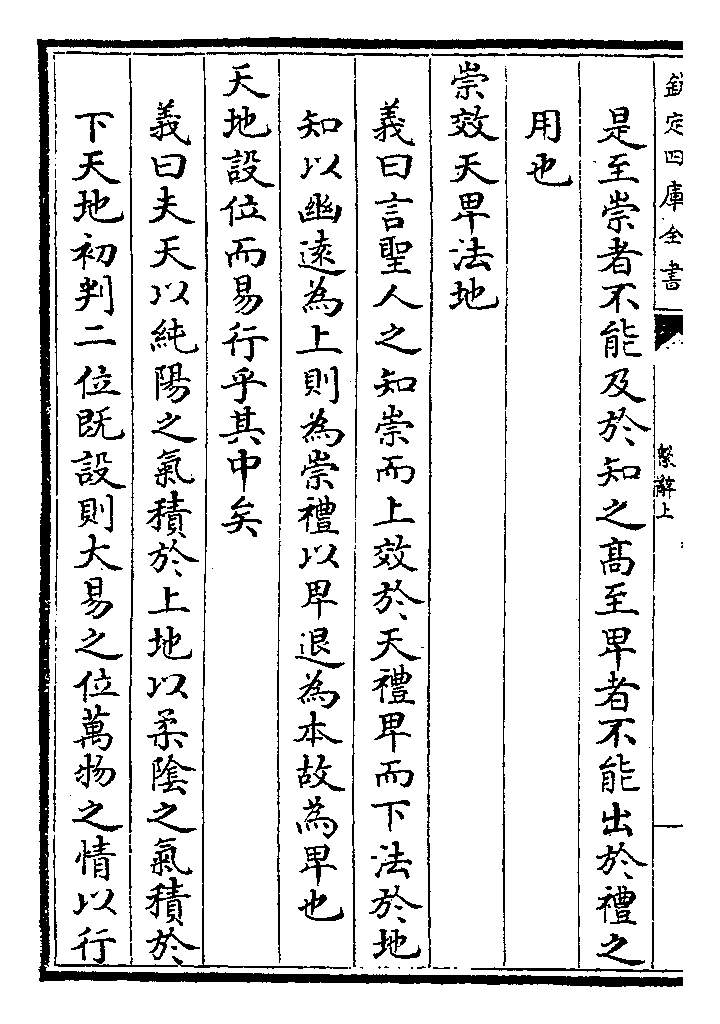 欽定四庫全書
繫辭上
是至崇者不能及於知之高至卑者不能出於禮之
用也
崇效天卑法地
義曰言聖人之知崇而上效於天禮卑而下法於地
知以幽遠為上則為崇禮以卑退為本故為卑也
天地設位而易行乎其中矣
義曰夫天以純陽之氣積於上地以柔陰之氣積於
下天地初判二位既設則大易之位萬物之情以行